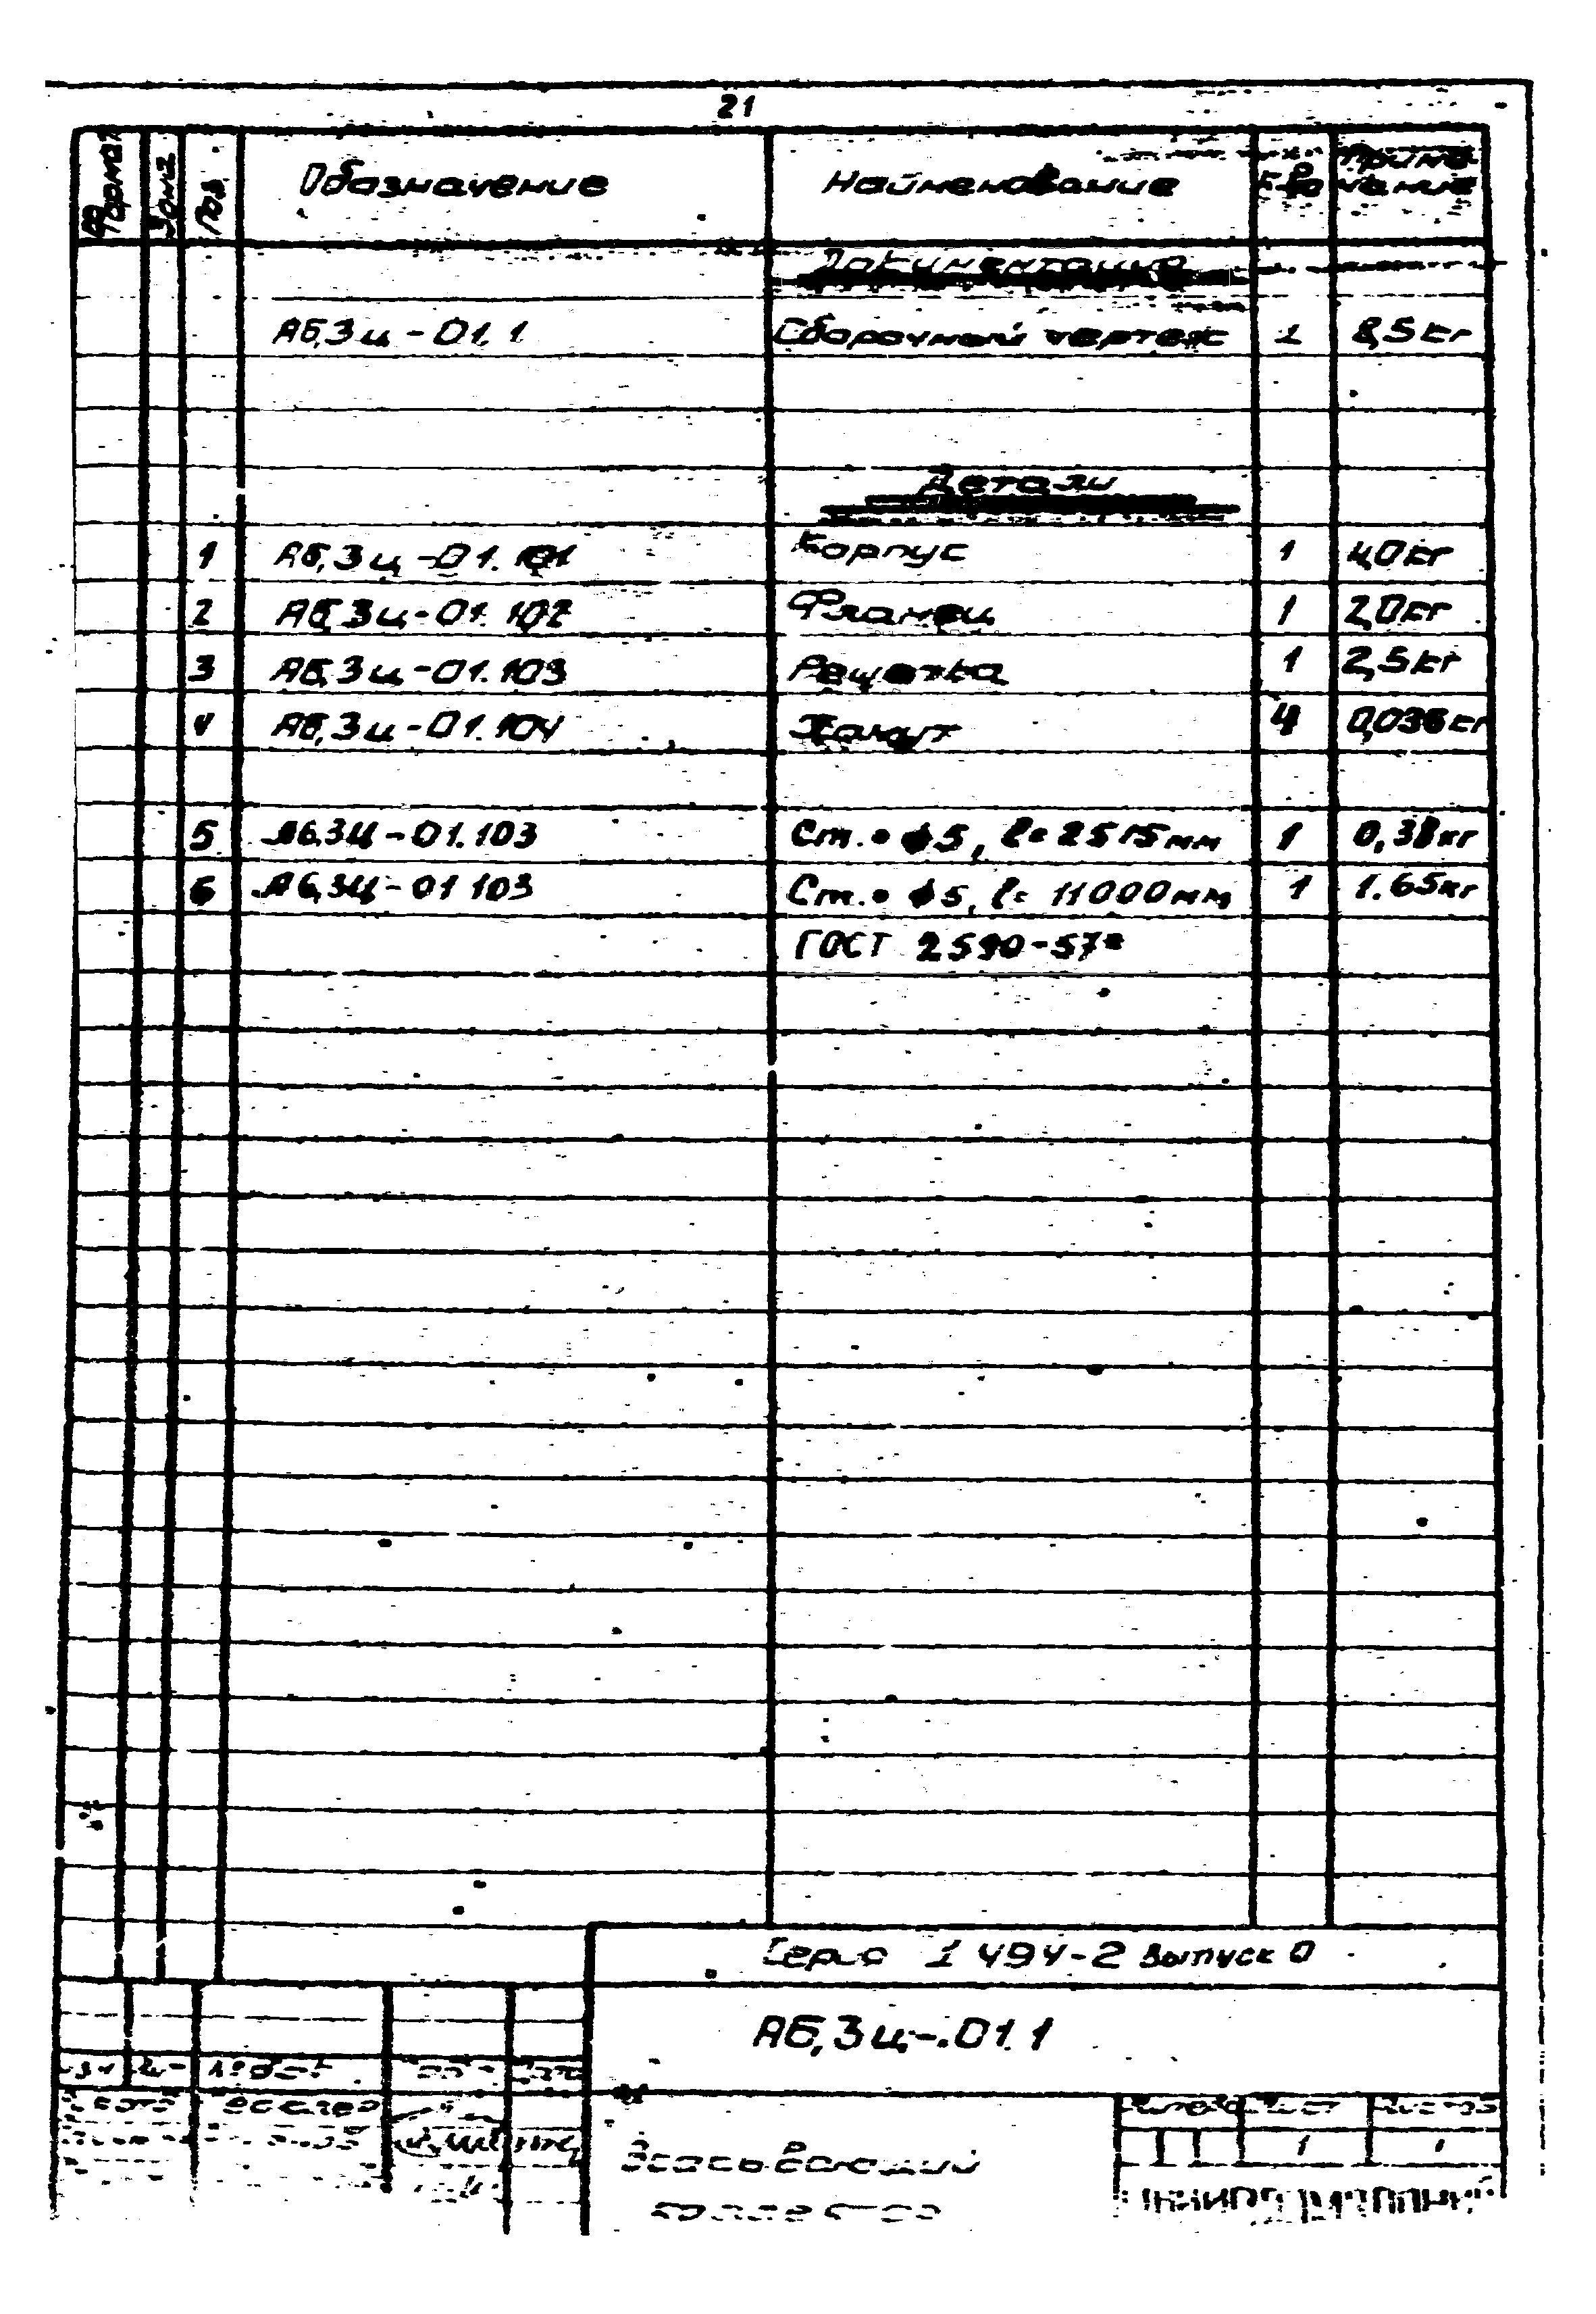 21
Формат Зона Поз. Обозначение Наименование К-во Примечание
Документация
А6,3ц-01.1 Сборочный чертеж 1 8,5кг
Детали
1 А6,3ц-01.101 Корпус 1 4,0кг
2 А6,3ц-01.102 Фланец 1 2,0кг
3 А6,3ц-01.103 Решетка 1 2,5кг
4 А6,3ц-01.104 Хомут 4 0,036кг
5 А6,3Ц-01.103 Ст.• ф5, ℓ= 2515мм 1 0,38кг
6 А6,3Ц-01 103 Ст.• ф5, ℓ= 11000мм 1 1.65кг
ГОСТ 2590-57*
Серия 1 494-2 выпуск 0
А6,3ц-.01.1
Лист Листов
1 1
Всасывающий